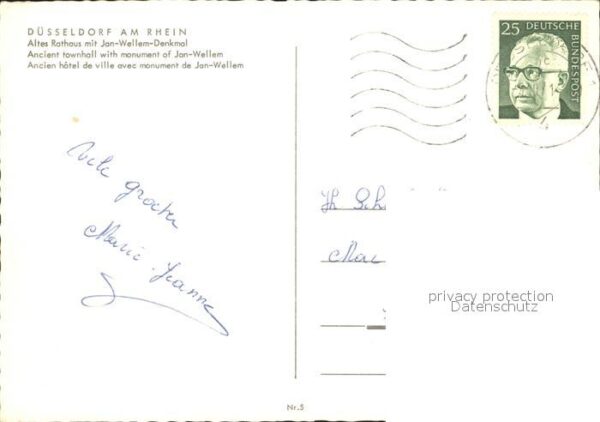 DÜSSELDORF AM RHEIN
Altes Rathaus mit Jan-Wellem-Denkmal
Ancient townhall with monument of Jan-Wellem
Ancien hôtel de ville avec monument de Jan-Wellem
25 DEUTSCHE
BUNDESPOST
Vele groeten
Marie-Jeanne
privacy protection
Datenschutz
Nr. 5